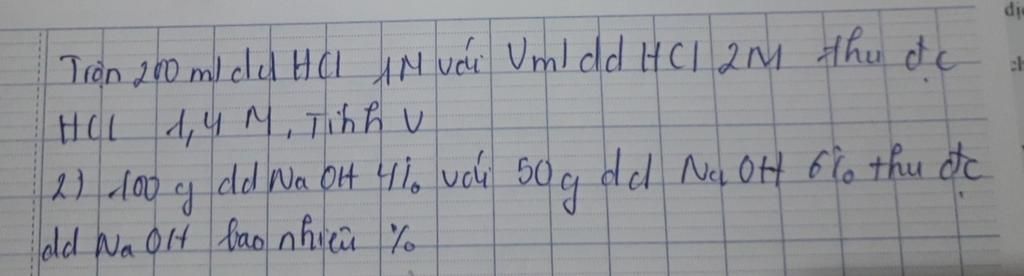 Trộn 200 ml dd HCl 1M với Vml dd HCl 2M thu đc
HCl 1,4 M, Tính V
2) 100 g dd NaOH 4% với 50g dd NaOH 6% thu đc
dd NaOH bao nhiêu %